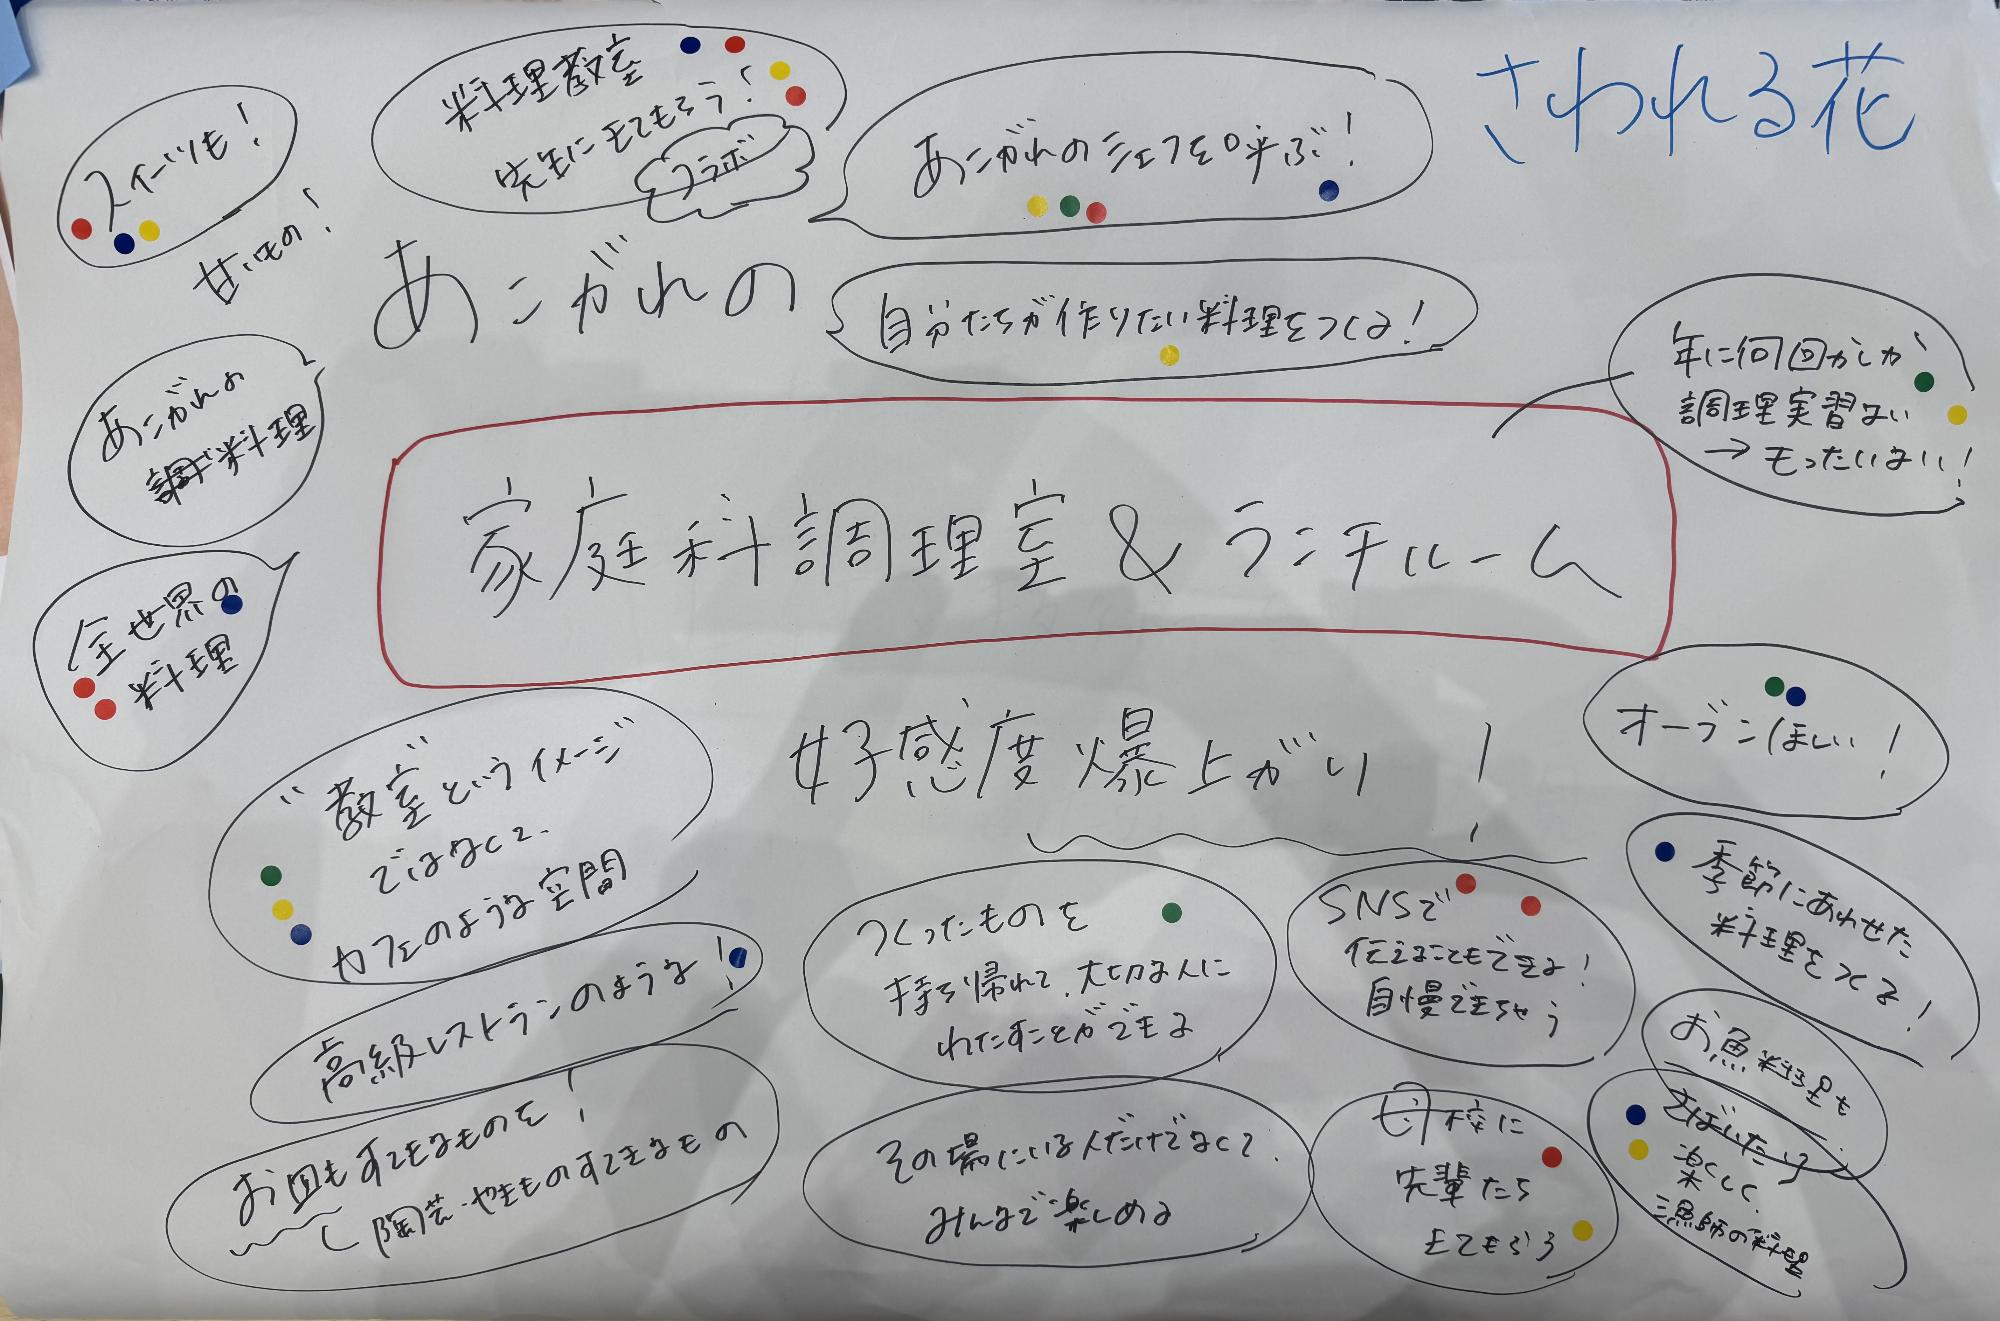 さわれる花
料理教室
先生にきてもらう!
コラボ
あこがれのシェフを呼ぶ!
スイーツも!
甘いもの!
あこがれの
自分たちが作りたい料理をつくる!
年に何回かしか
調理実習ない
→もったいない!
あこがれの
料理
全世界の
料理
家庭科調理室&ランチルーム
好感度爆上がり!
オーブンほしい!
"教室というイメージ"
ではなくて、
カフェのような空間
高級レストランのような!
お皿もすてきなものを!
陶芸・やきものすてきなもの
つくったものを
持ち帰れて、大切な人に
わたすことができる
SNSで
伝えることもできる!
自慢できちゃう
季節にあわせた
料理をつくる!
お魚料理も
さばいたり
楽しく
漁師の料理
その場にいる人だけでなくて、
みんなで楽しめる
母校に
先輩たち
きてもらう